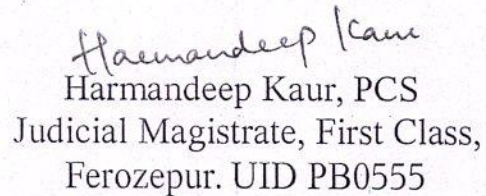 Harmandeep Kaur
Harmandeep Kaur, PCS
Judicial Magistrate, First Class,
Ferozepur. UID PB0555